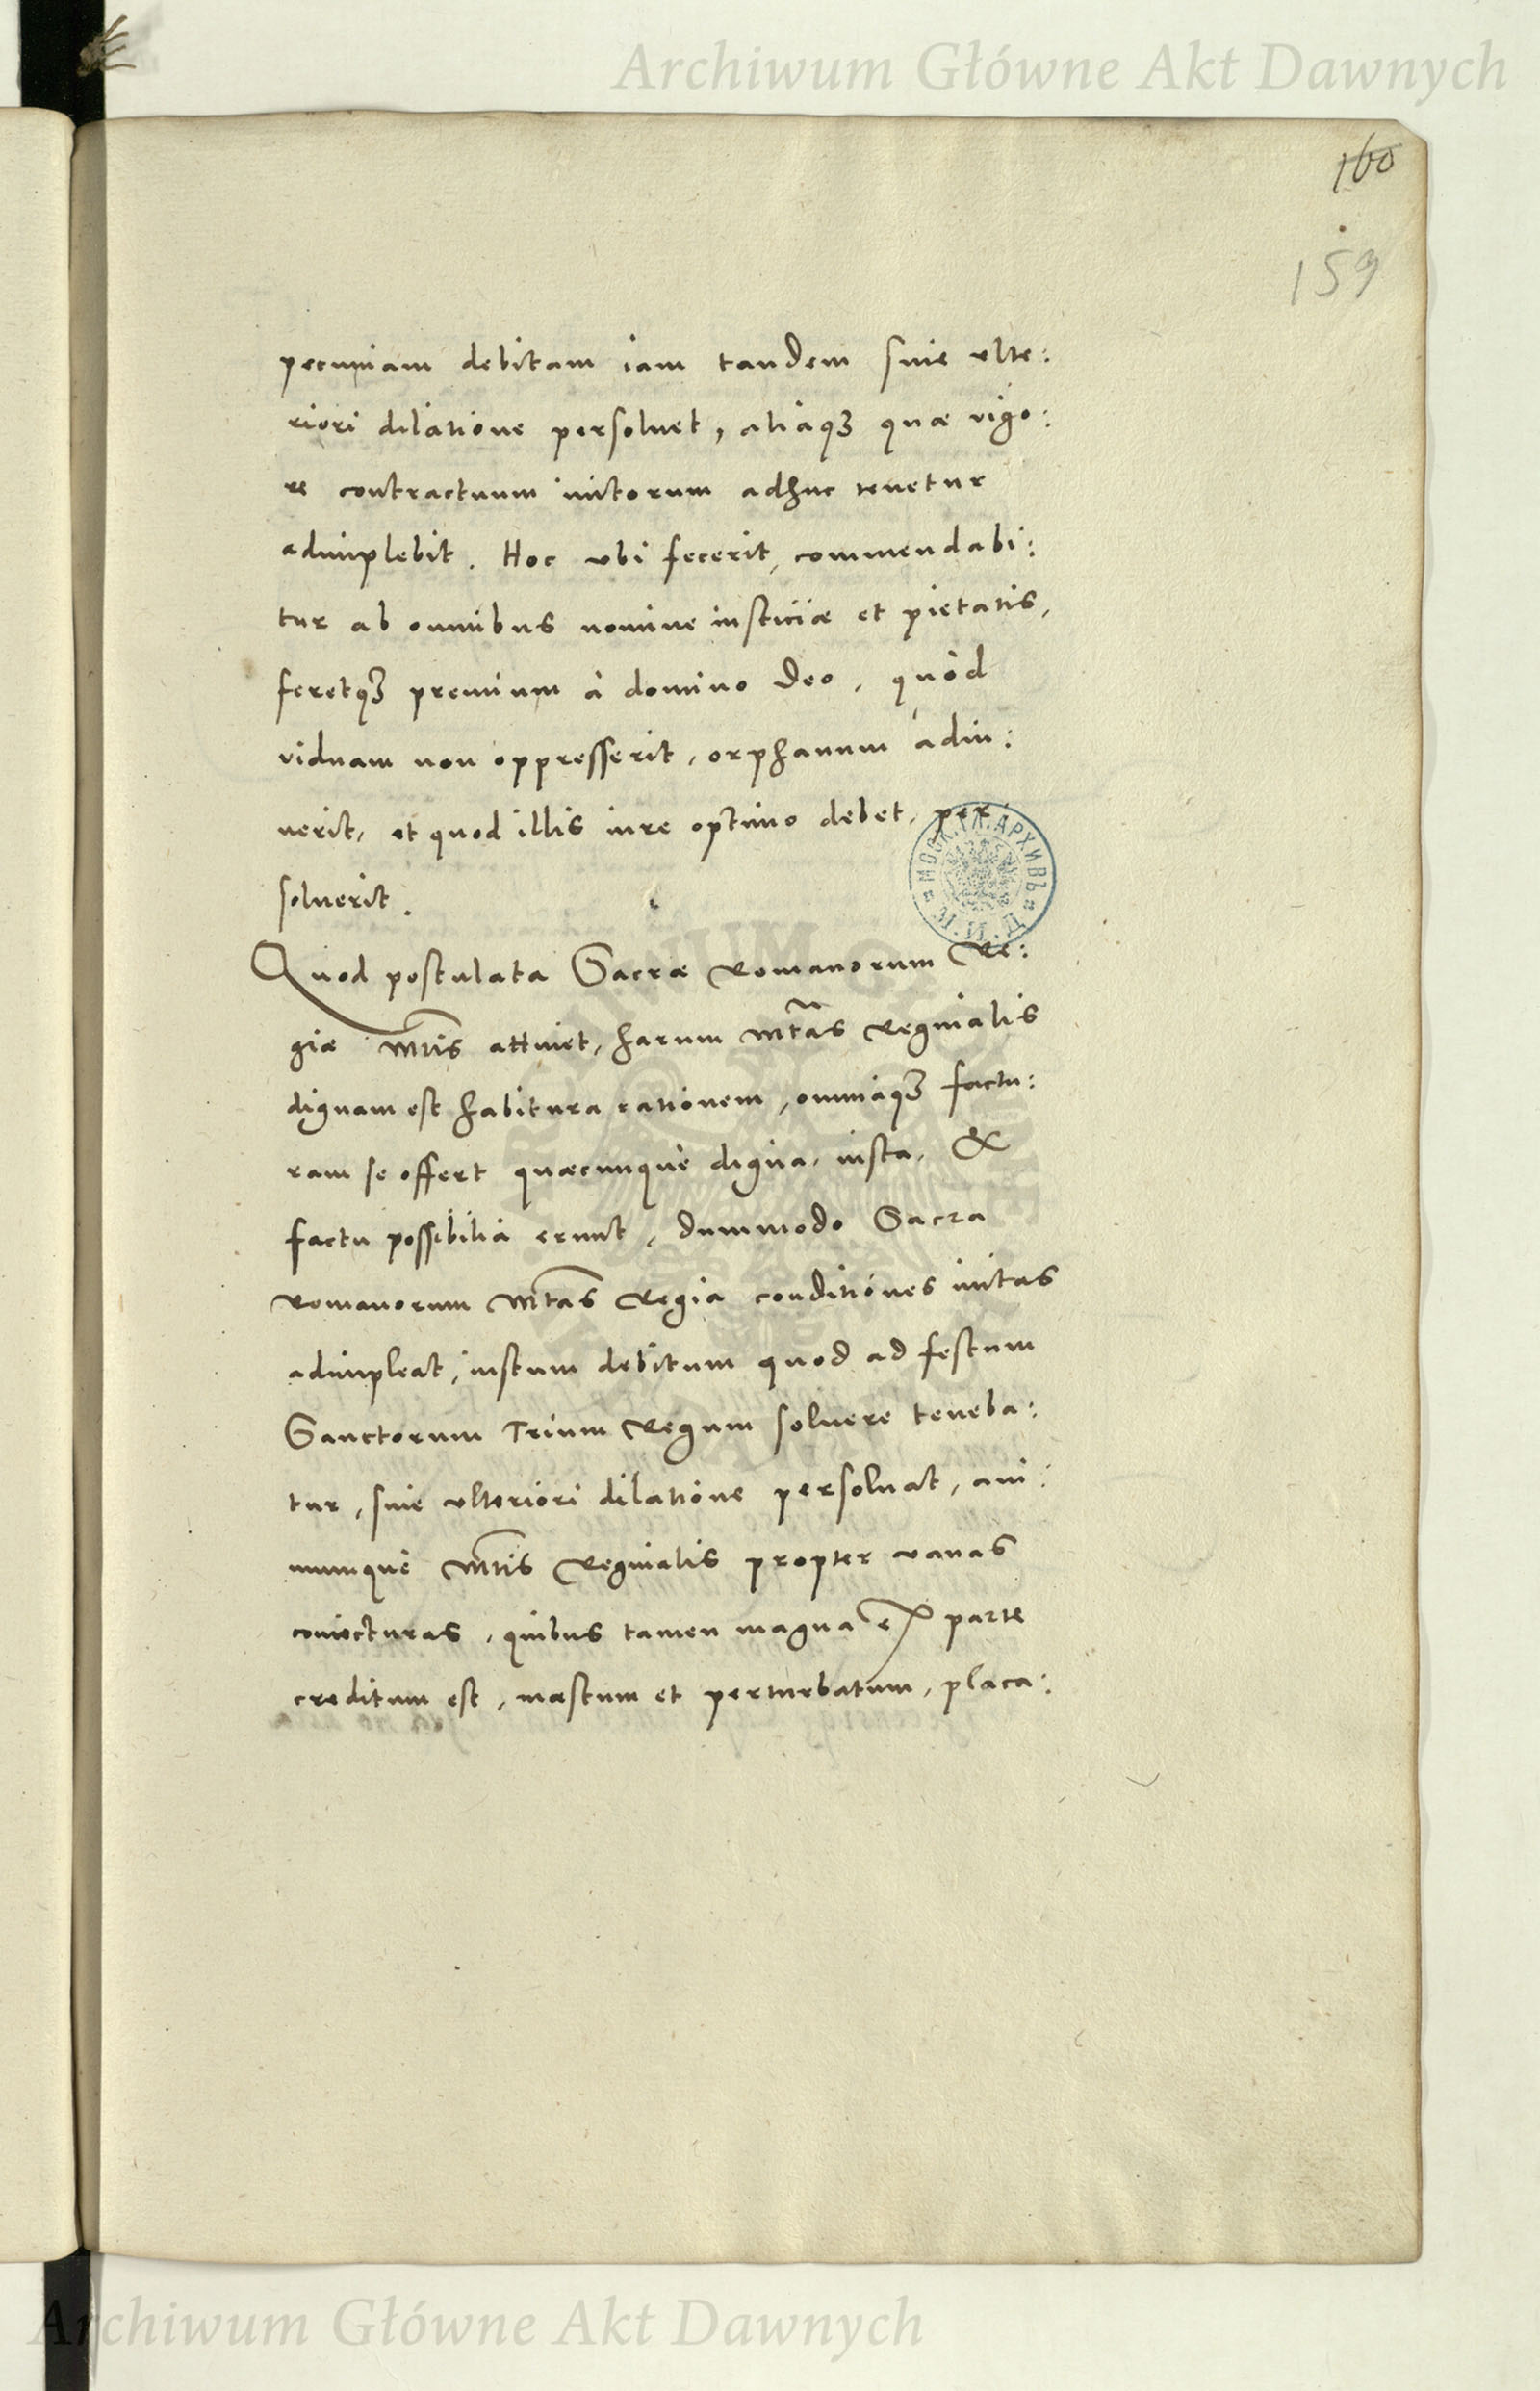 Archiwum Główne Akt Dawnych
160
159
pecuniam debitam iam tandem sine ulte:
riori dilatione persoluet, aliaqꝫ quæ rigo:
re contractuum initorum adhuc tenetur
adimplebit. Hoc vbi fecerit, commendabi:
tur ab omnibus nomine iusticiæ et pietatis,
feretqꝫ premium à domino Deo, quòd
viduam non oppresserit, orphanum adiu:
uerit, et quod illis iure optimo debet, per
soluerit.
МОСК. ГЛ. АРХИВЪ М. И. Д.
Quod postulata Sacræ Romanorum Re:
giæ Mtis attinet, harum Mtas Reginalis
dignam est habitura rationem, omniaqꝫ factu:
ram se offert quæcunque digna, iusta, &
factu possibilia erunt, dummodo Sacra
Romanorum Mtas Regia conditiones initas
adimpleat, iustum debitum quod ad festum
Sanctorum Trium Regum soluere teneba:
tur, sine vlteriori dilatione persoluat, ani:
mumque Mtis Reginalis propter vanas
coniecturas, quibus tamen magna ex parte
creditum est, mæstum et perturbatum, placa:
Archiwum Główne Akt Dawnych